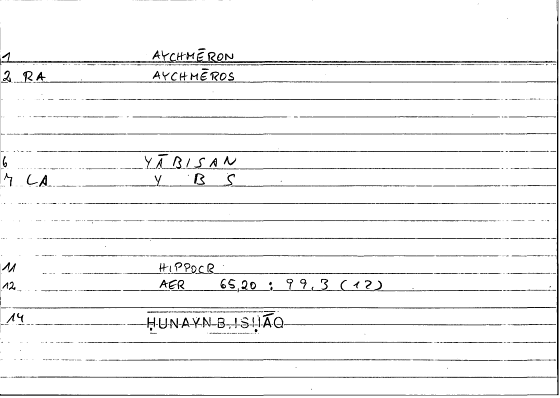 1 AYCHMĒRON
2 RA AYCHMĒROS
6 YĀBISAN
7 LA Y B S
11 HIPPOCR
12 AER 65,20 : 99,3 (12)
14 ḤUNAYN B. ISḤĀQ